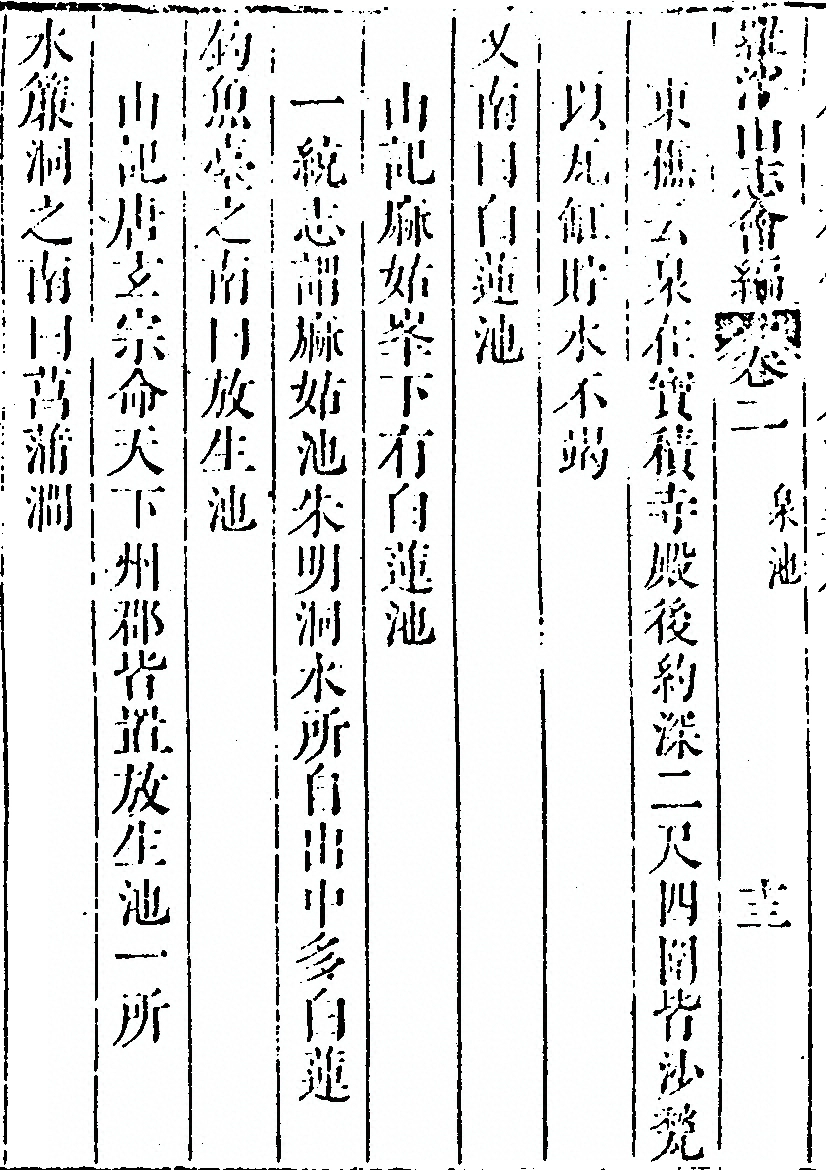 羅浮山志會編 卷二 泉池 圭
東樵云泉在寶積寺殿後約深二尺四圍皆沙甃
以瓦缸貯水不竭
又南曰白蓮池
山記麻姑峯下有白蓮池
一統志謂麻姑池朱明洞水所自出中多白蓮
釣魚臺之南曰放生池
山記唐玄宗命天下州郡皆置放生池一所
水簾洞之南曰菖蒲澗